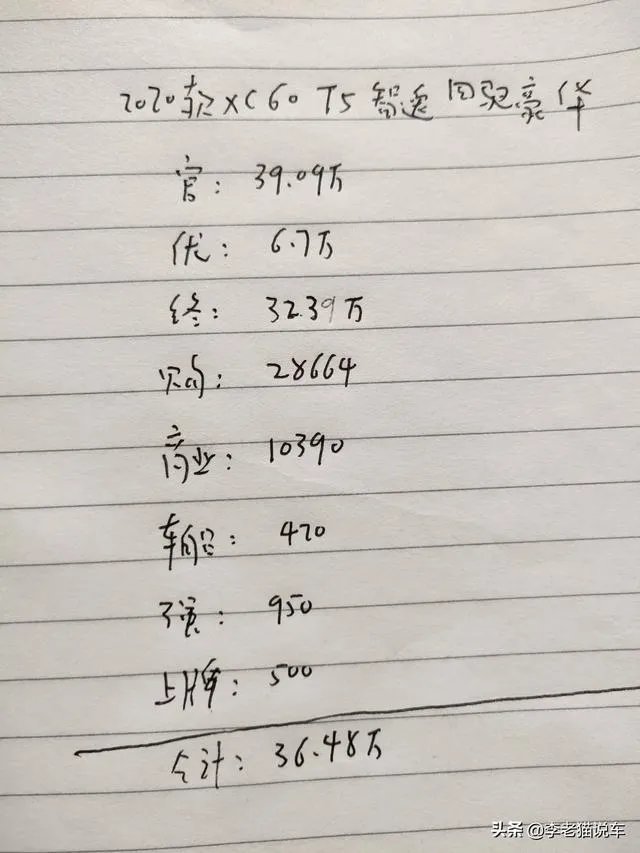 2020款XC60 T5 智远 四驱豪华
官: 39.09万
优: 6.7万
终: 32.39万
购: 28664
商业: 10390
车船: 420
强: 950
上牌: 500
合计: 36.48万
头条 @李老猫说车